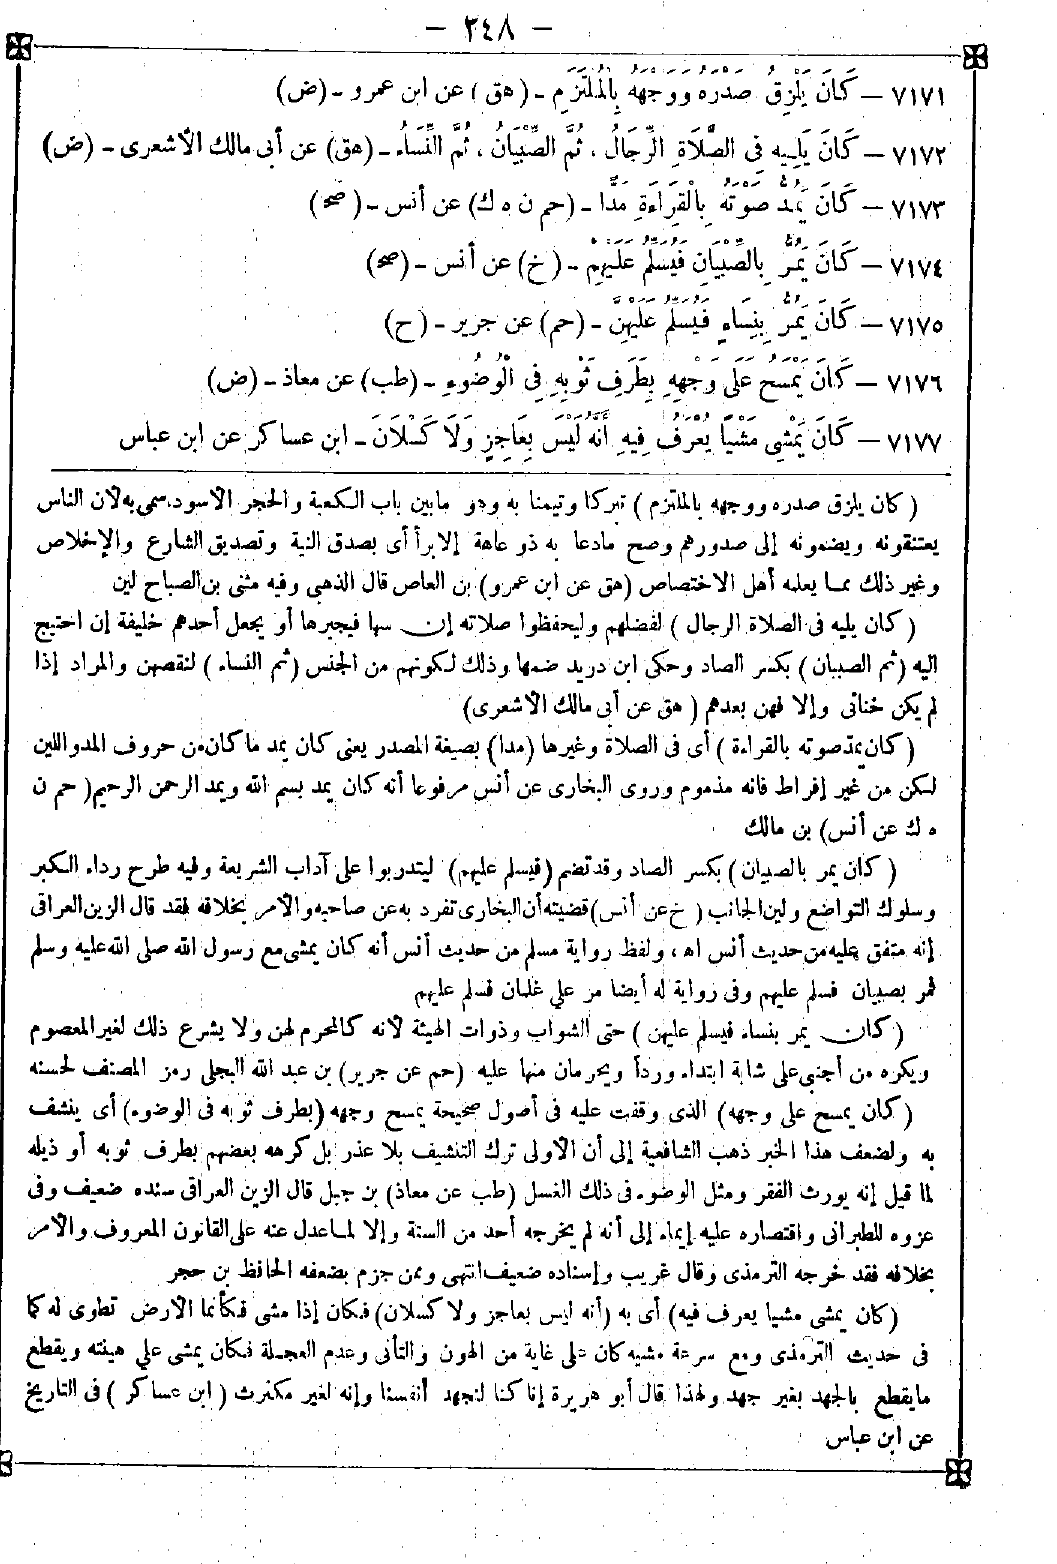 — ٢٤٨ —
٧١٧١ — كَانَ يَلْزِقُ صَدْرَهُ وَوَجْهَهُ بِالْمُلْتَزَمِ - (هق) عن ابن عمرو - (ض)
٧١٧٢ — كَانَ يَلِيهِ فِى الصَّلَاةِ الرِّجَالُ ، ثُمَّ الصِّبْيَانُ ، ثُمَّ النِّسَاءُ - (هق) عن أبى مالك الأشعرى - (ض)
٧١٧٣ — كَانَ يَمُدُّ صَوْتَهُ بِالْقِرَاءَةِ مَدًّا - (حم ن ه ك) عن أنس - (صح)
٧١٧٤ — كَانَ يَمُرُّ بِالصِّبْيَانِ فَيُسَلِّمُ عَلَيْهِمْ - (خ) عن أنس - (صح)
٧١٧٥ — كَانَ يَمُرُّ بِنِسَاءٍ فَيُسَلِّمُ عَلَيْهِنَّ - (حم) عن جرير - (ح)
٧١٧٦ — كَانَ يَمْسَحُ عَلَى وَجْهِهِ بِطَرَفِ ثَوْبِهِ فِى الْوُضُوءِ - (طب) عن معاذ - (ض)
٧١٧٧ — كَانَ يَمْشِى مَشْيًا يُعْرَفُ فِيهِ أَنَّهُ لَيْسَ بِعَاجِزٍ وَلَا كَسْلَانَ - ابن عساكر عن ابن عباس
(كان يلزق صدره ووجهه بالملتزم) تبركا وتيمنا به وهو مابين باب الكعبة والحجر الأسود، سمى به لأن الناس
يعتنقونه ويضمونه إلى صدورهم وصح مادعا به ذو عاهة إلا برأ أى بصدق النية وتصديق الشارع والإخلاص
وغير ذلك مما يعلمه أهل الاختصاص (هق عن ابن عمرو) بن العاص قال الذهبى وفيه مثنى بن الصباح لين
(كان يليه فى الصلاة الرجال) لفضلهم وليحفظوا صلاته إن سها فيجبرها أو يجعل أحدهم خليفة إن احتيج
اليه (ثم الصبيان) بكسر الصاد وحكى ابن دريد ضمها وذلك لكونهم من الجنس (ثم النساء) لنقصهن والمراد إذا
لم يكن خناثى وإلا فهن بعدهم (هق عن أبى مالك الأشعرى)
(كان يمد صوته بالقراءة) أى فى الصلاة وغيرها (مدا) بصيغة المصدر يعنى كان يمد ما كان من حروف المد واللين
لكن من غير إفراط فانه مذموم وروى البخارى عن أنس مرفوعا أنه كان يمد بسم الله ويمد الرحمن الرحيم (حم ن
ه ك عن أنس) بن مالك
(كان يمر بالصبيان) بكسر الصاد وقد تضم (فيسلم عليهم) ليتدربوا على آداب الشريعة وفيه طرح رداء الكبر
وسلوك التواضع ولين الجانب (خ عن أنس) قضيته أن البخارى تفرد به عن صاحبه والأمر بخلافه فقد قال الزين العراقى
إنه متفق عليه من حديث أنس اه ، ولفظ رواية مسلم من حديث أنس أنه كان يمشى مع رسول الله صلى الله عليه وسلم
فمر بصبيان فسلم عليهم وفى رواية له أيضا مر على غلمان فسلم عليهم
(كان يمر بنساء فيسلم عليهن) حتى الشواب وذوات الهيئة لأنه كالمحرم لهن ولا يشرع ذلك لغير المعصوم
ويكره من أجنبى على شابة ابتداء ورداً ويحرمان منها عليه (حم عن جرير) بن عبد الله البجلى رمز المصنف لحسنه
(كان يمسح على وجهه) الذى وقفت عليه فى أصول صحيحة يمسح وجهه (بطرف ثوبه فى الوضوء) أى ينشف
به ولضعف هذا الخبر ذهب الشافعية إلى أن الأولى ترك التنشيف بلا عذر بل كرهه بعضهم بطرف ثوبه أو ذيله
لما قيل إنه يورث الفقر ومثل الوضوء فى ذلك الغسل (طب عن معاذ) بن جبل قال الزين العراقى سنده ضعيف وفى
عزوه للطبرانى واقتصاره عليه إيماء إلى أنه لم يخرجه أحد من الستة وإلا لما عدل عنه على القانون المعروف والأمر
بخلافه فقد خرجه الترمذى وقال غريب وإسناده ضعيف انتهى وممن جزم بضعفه الحافظ بن حجر
(كان يمشى مشيا يعرف فيه) أى به (أنه ليس بعاجز ولا كسلان) فكان إذا مشى فكأنما الأرض تطوى له كما
فى حديث الترمذى ومع سرعة مشيه كان على غاية من الهون والتأنى وعدم العجلة فكان يمشى على هينته ويقطع
ما يقطع بالجهد بغير جهد ولهذا قال أبو هريرة إنا كنا لنجهد أنفسنا وإنه لغير مكترث (ابن عساكر) فى التاريخ
عن ابن عباس